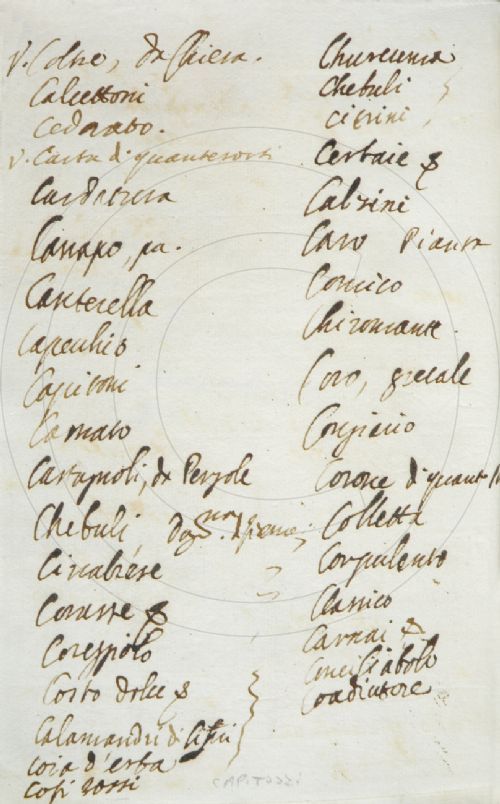 V. Coltre, da
Calcettoni
Cedrato.
V. Carta di quante sorti
Cardatura
Canapo, pa.
Canterella
Capecchio
Capitoni
Camato
Castagnoli, da Pergole
Chebuli,
Cinabrese
Corasse
Corespiolo
Costo dolce
Calamandri di
Coia d'erba
Cosi rossi
Churcuma
Chebuli
Citrini
Cerbaie
Calzini
Caro Pianta
Comico
Chiromante
Coro, grecale
Congiario
Corone di quant
Colletta
Corpulento
Classico
Carnai
Conciliabolo
Coadiutore
CAPITOZZI